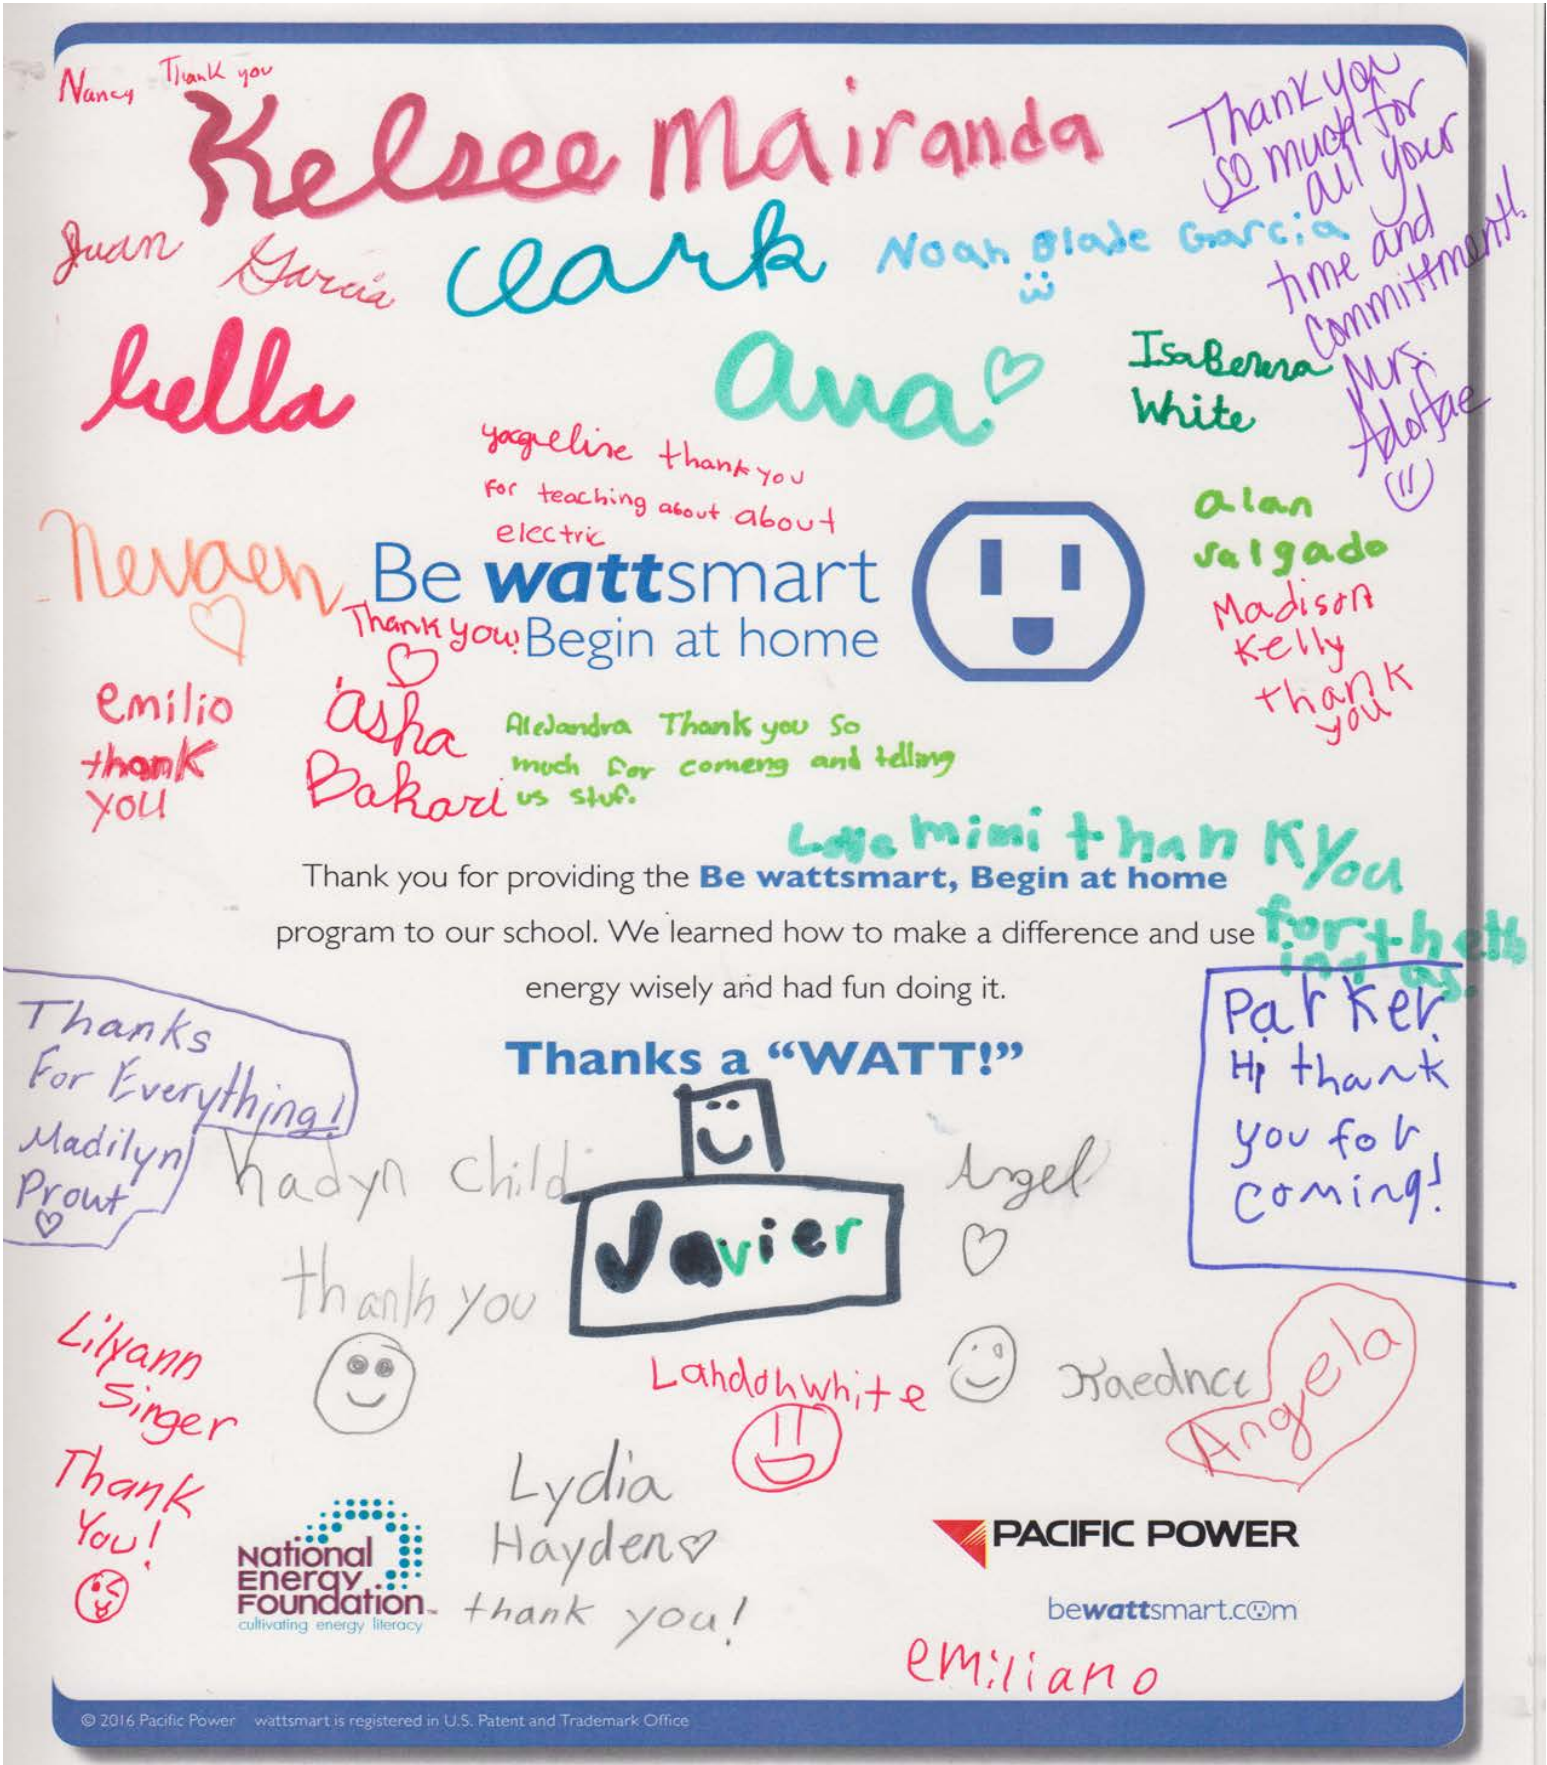 Nancy Thank you
Kelsee Mairanda
Thank you
so much for
all your
time and
committment!
Mrs.
Juan Garcia
Clark
Noah Blade Garcia
bella
ana
IsaBerera
White
yaqueline thank you
For teaching about about
electric
alan
salgado
Nevaeh
Be wattsmart
Begin at home
Thank you!
Madison
Kelly
thank
you
emilio
thank
you
asha
Bakari
Alejandra Thank you So
much for comeng and telling
us stuf.
Love mimi thank you
for thett
ing us.
Thank you for providing the Be wattsmart, Begin at home
program to our school. We learned how to make a difference and use
energy wisely and had fun doing it.
Thanks a “WATT!”
Thanks
For Everything!
Madilyn
Prout
Parker
Hi thank
you for
coming!
hadyn Child
thank you
Javier
Angel
Lilyann
Singer
Thank
You!
Landonwhite
Kaednce
Angela
Lydia
Hayden
thank you!
National
Energy
Foundation™
cultivating energy literacy
PACIFIC POWER
bewattsmart.com
emiliano
© 2016 Pacific Power wattsmart is registered in U.S. Patent and Trademark Office